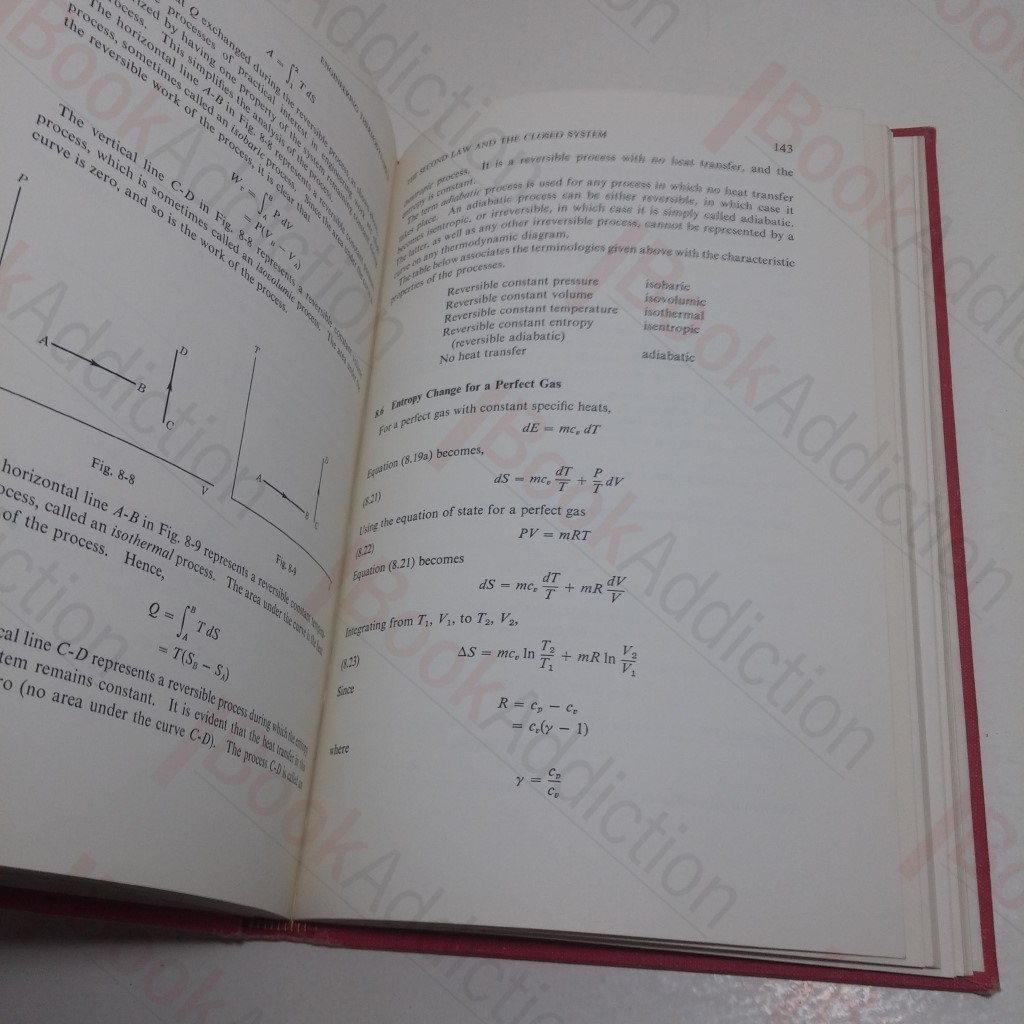 ENGINEERING THERMODYNAMICS
A = ∫₁² T dS
Q exchanged during the reversible process
processes of practical interest in
by having one property of the system
process. This simplifies the analysis of the
The horizontal line A-B in Fig. 8-8 represents a reversible constant pressure
process, sometimes called an isobaric process. Since the area under the
the reversible work of the process, it is clear that
Wᵣ = ∫_A^B P dV
= P(V_B − V_A)
The vertical line C-D in Fig. 8-8 represents a reversible constant volume
process, which is sometimes called an isovolumic process. The area under the
curve is zero, and so is the work of the process.
P
A
B
D
C
V
Fig. 8-8
T
A
B
D
C
Fig. 8-9
horizontal line A-B in Fig. 8-9 represents a reversible constant tempera-
process, called an isothermal process. The area under the curve is the heat
of the process. Hence,
Q = ∫_A^B T dS
= T(S_B − S_A)
cal line C-D represents a reversible process during which the entropy
tem remains constant. It is evident that the heat transfer in this
ro (no area under the curve C-D). The process C-D is called an
THE SECOND LAW AND THE CLOSED SYSTEM 143
isentropic process. It is a reversible process with no heat transfer, and the
entropy is constant.
The term adiabatic process is used for any process in which no heat transfer
takes place. An adiabatic process can be either reversible, in which case it
becomes isentropic, or irreversible, in which case it is simply called adiabatic.
The latter, as well as any other irreversible process, cannot be represented by a
curve on any thermodynamic diagram.
The table below associates the terminologies given above with the characteristic
properties of the processes.
Reversible constant pressure isobaric
Reversible constant volume isovolumic
Reversible constant temperature isothermal
Reversible constant entropy isentropic
(reversible adiabatic)
No heat transfer adiabatic
8.6 Entropy Change for a Perfect Gas
For a perfect gas with constant specific heats,
dE = mcᵥ dT
Equation (8.19a) becomes,
(8.21) dS = mcᵥ dT/T + P/T dV
Using the equation of state for a perfect gas
(8.22) PV = mRT
Equation (8.21) becomes
dS = mcᵥ dT/T + mR dV/V
Integrating from T₁, V₁, to T₂, V₂,
(8.23) ΔS = mcᵥ ln T₂/T₁ + mR ln V₂/V₁
Since
R = cₚ − cᵥ
= cᵥ(γ − 1)
where
γ = cₚ/cᵥ